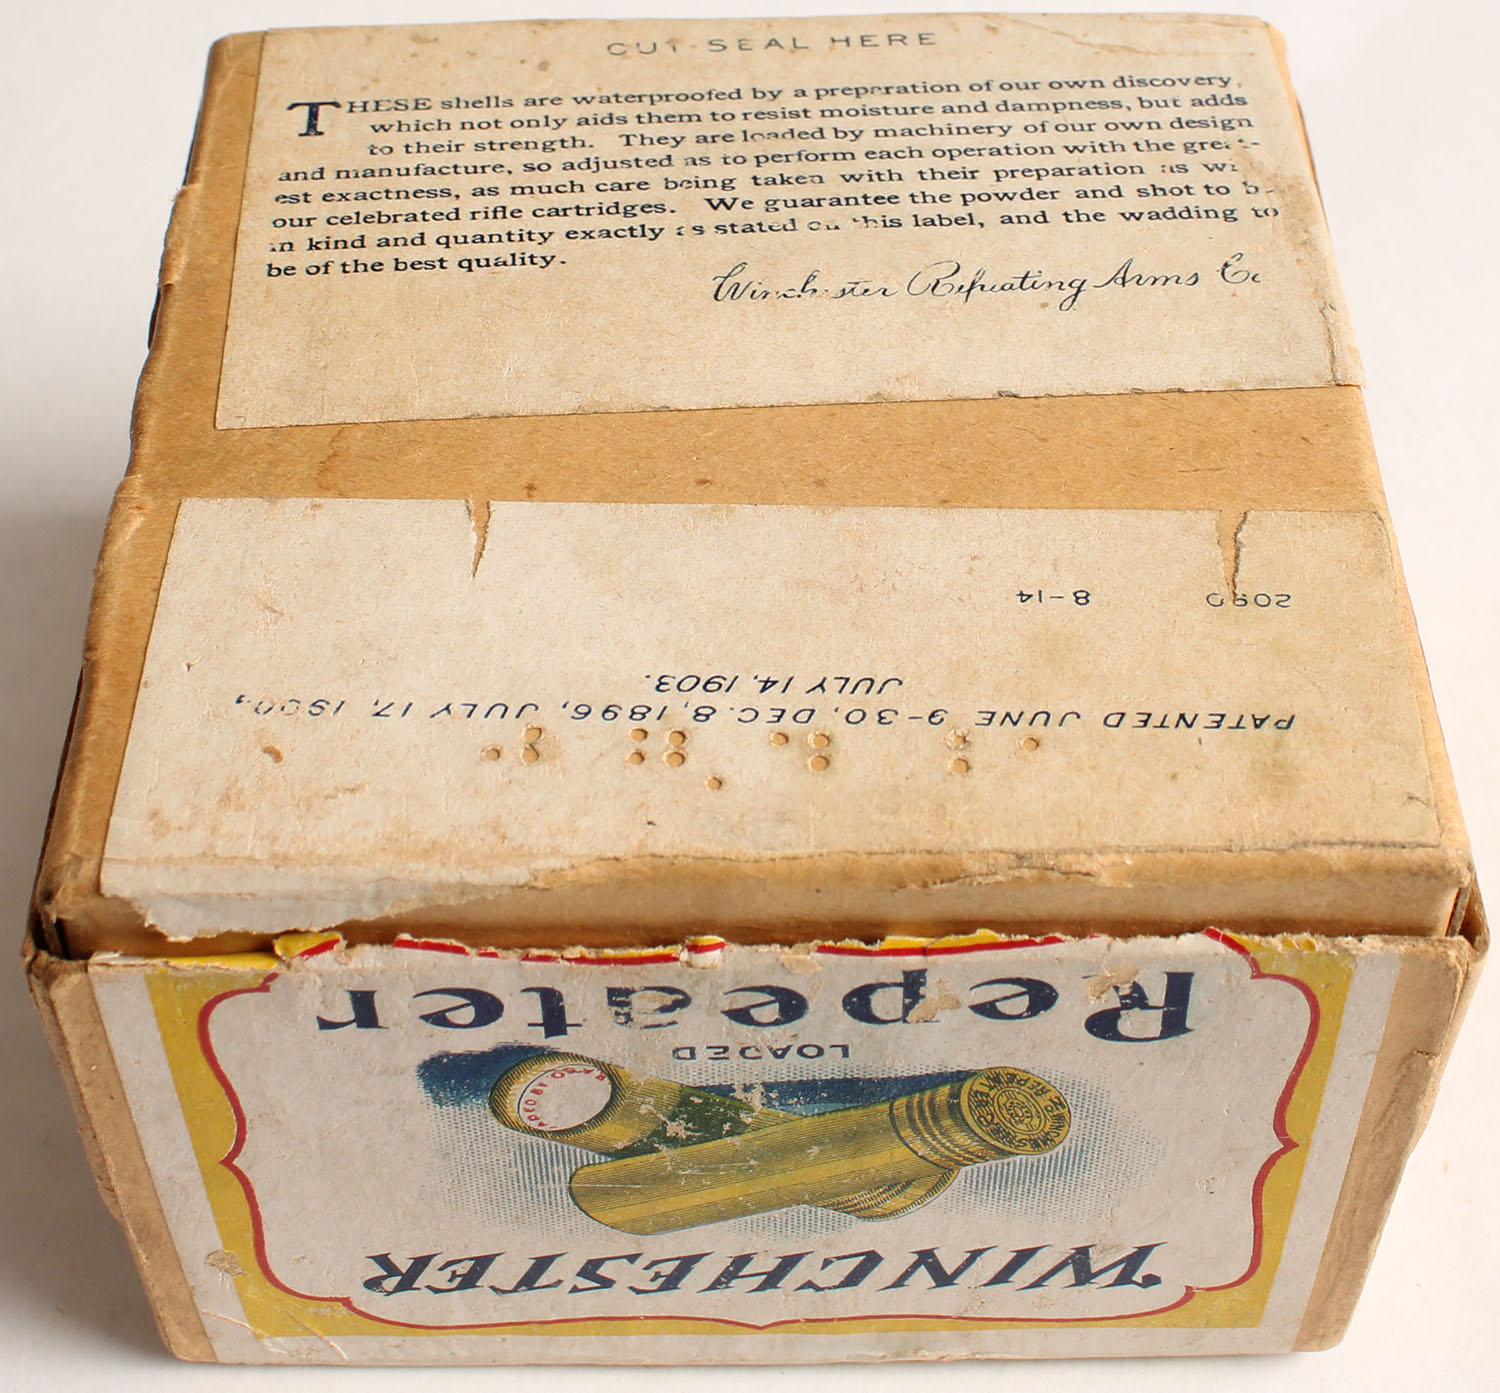 CUT SEAL HERE
THESE shells are waterproofed by a preparation of our own discovery,
which not only aids them to resist moisture and dampness, but adds
to their strength. They are loaded by machinery of our own design
and manufacture, so adjusted as to perform each operation with the great-
est exactness, as much care being taken with their preparation as with
our celebrated rifle cartridges. We guarantee the powder and shot to be
in kind and quantity exactly as stated on this label, and the wadding to
be of the best quality.
Winchester Repeating Arms Co
8-14
PATENTED JUNE 9-30, DEC. 8, 1896, JULY 17, 1900,
JULY 14, 1903.
WINCHESTER
LOADED
Repeater